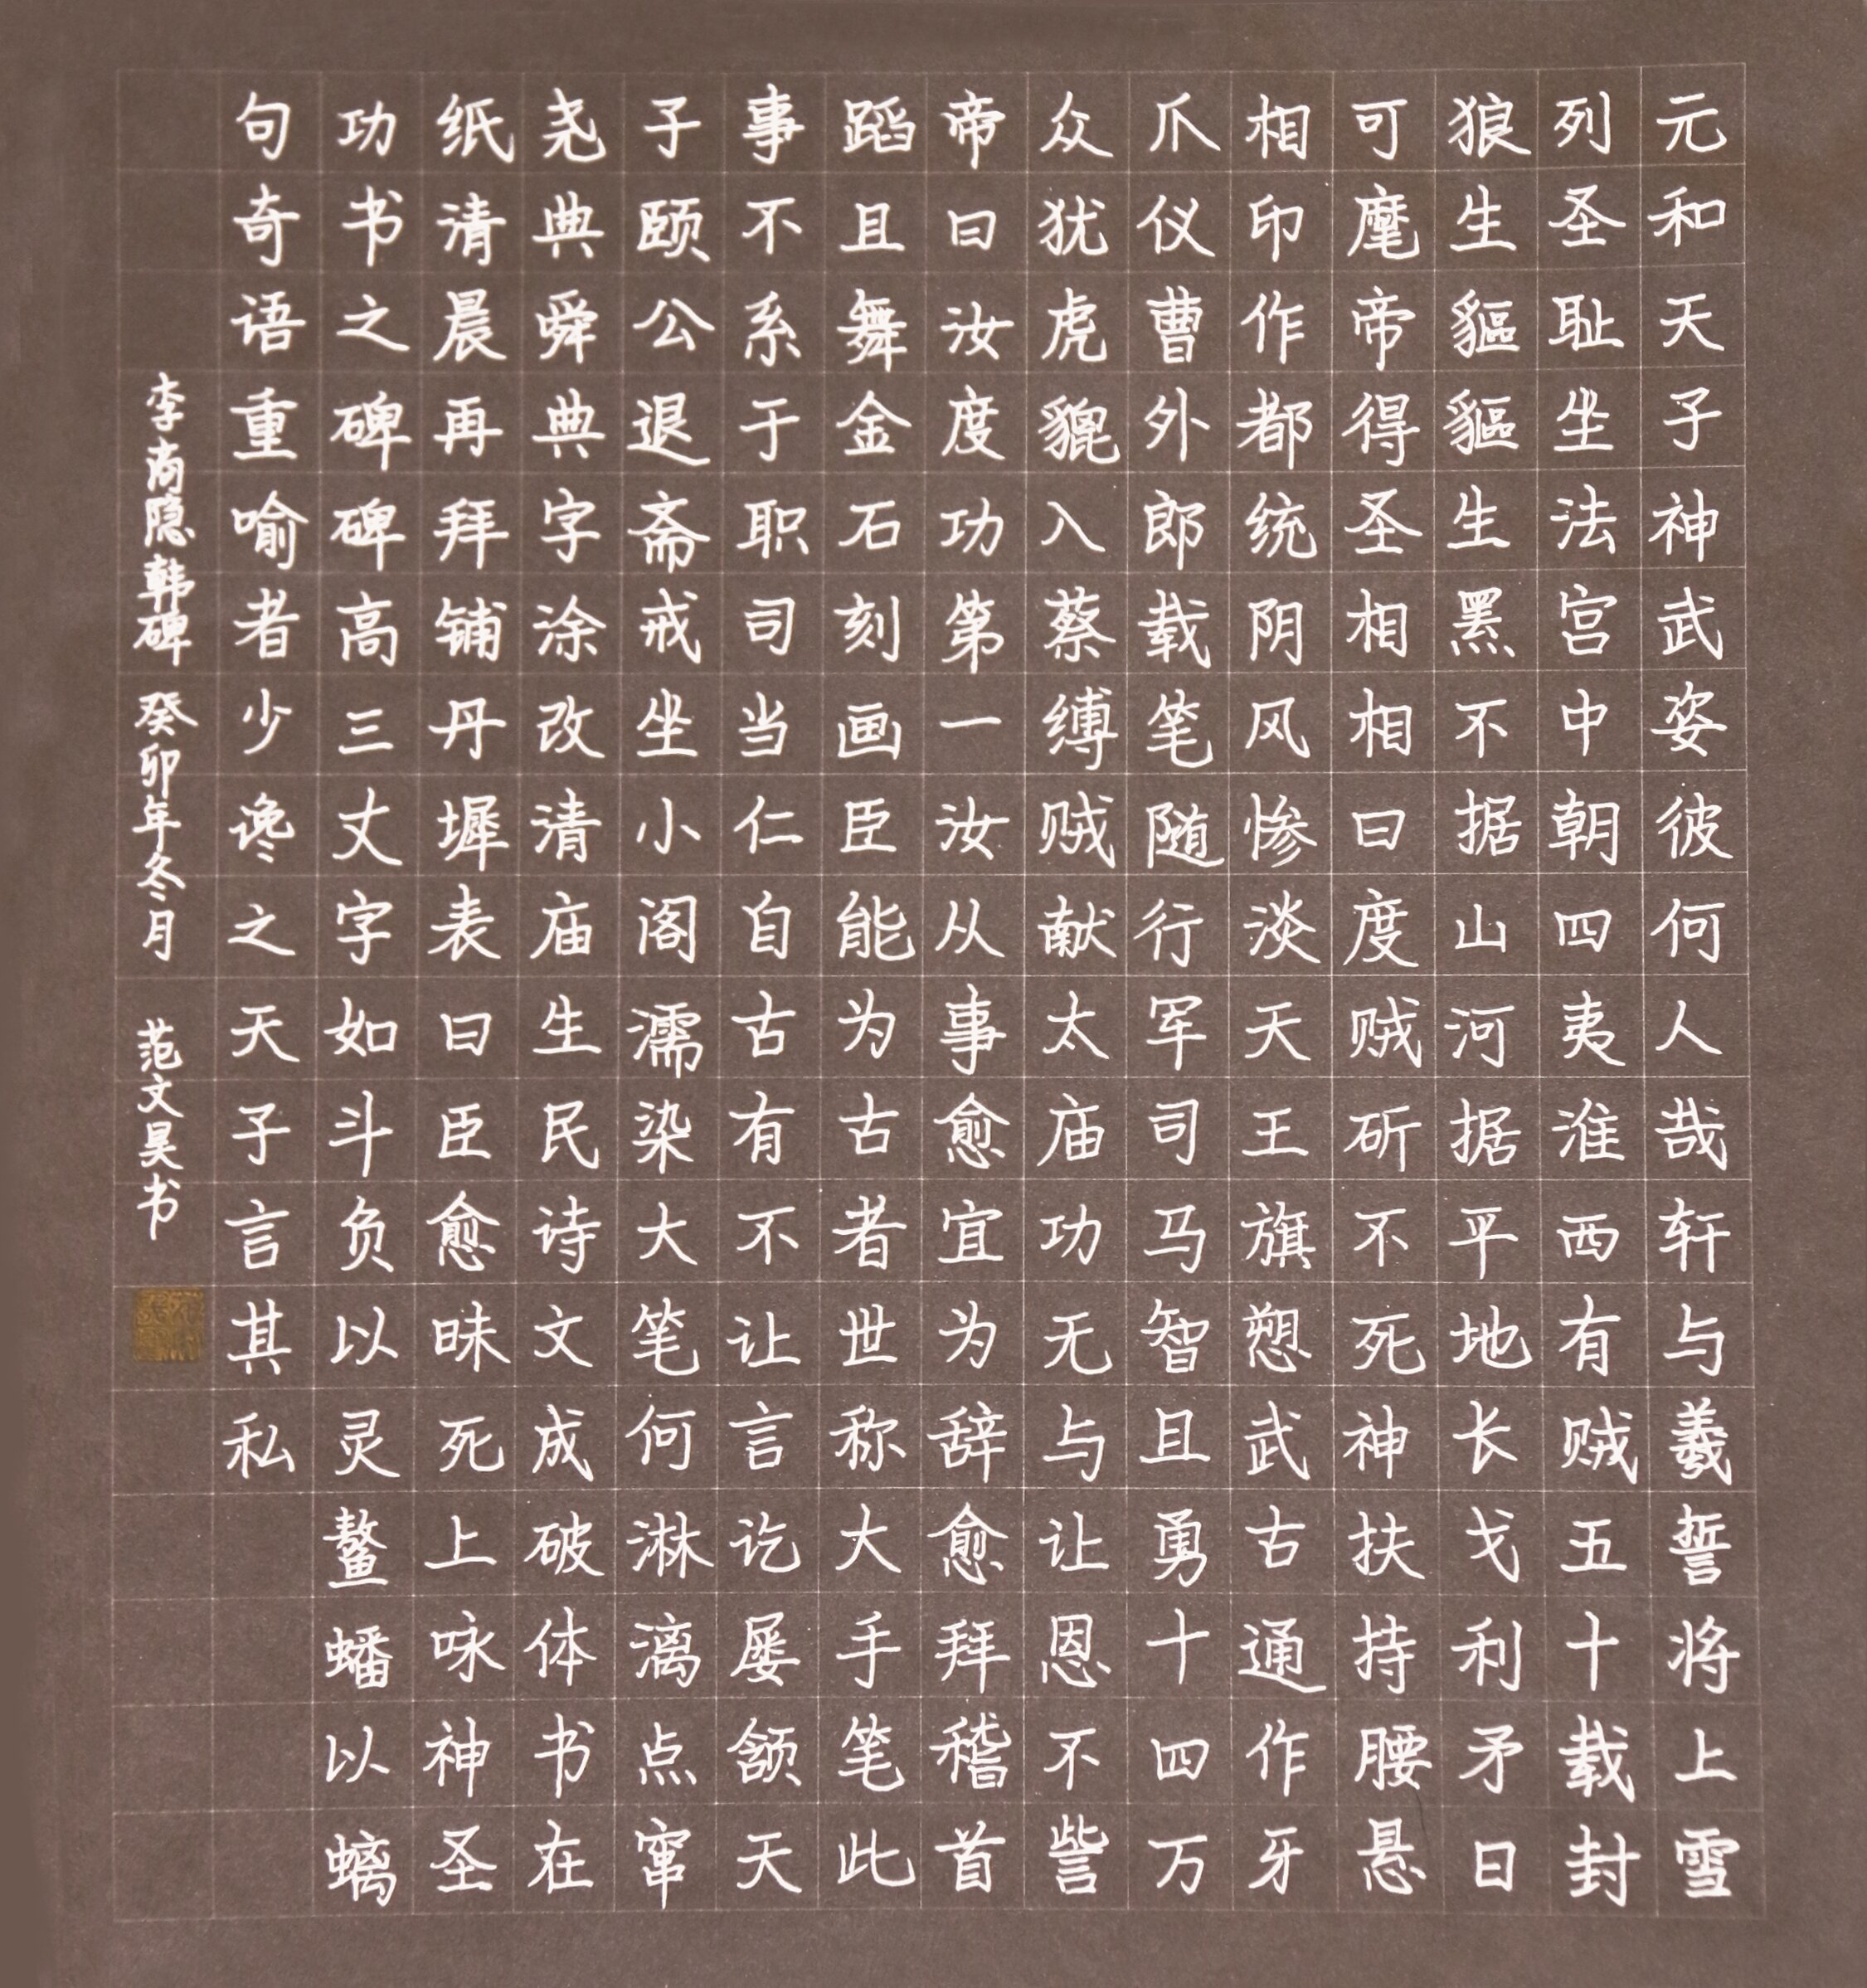 元和天子神武姿彼何人哉轩与羲誓将上雪
列圣耻坐法宫中朝四夷淮西有贼五十载封
狼生貙貙生罴不据山河据平地长戈利矛日
可麾帝得圣相相曰度贼斫不死神扶持腰悬
相印作都统阴风惨淡天王旗愬武古通作牙
爪仪曹外郎载笔随行军司马智且勇十四万
众犹虎貔入蔡缚贼献太庙功无与让恩不訾
帝曰汝度功第一汝从事愈宜为辞愈拜稽首
蹈且舞金石刻画臣能为古者世称大手笔此
事不系于职司当仁自古有不让言讫屡颔天
子颐公退斋戒坐小阁濡染大笔何淋漓点窜
尧典舜典字涂改清庙生民诗文成破体书在
纸清晨再拜铺丹墀表曰臣愈昧死上咏神圣
功书之碑碑高三丈字如斗负以灵鳌蟠以螭
句奇语重喻者少谗之天子言其私
李商隐韩碑 癸卯年冬月 范文昊书